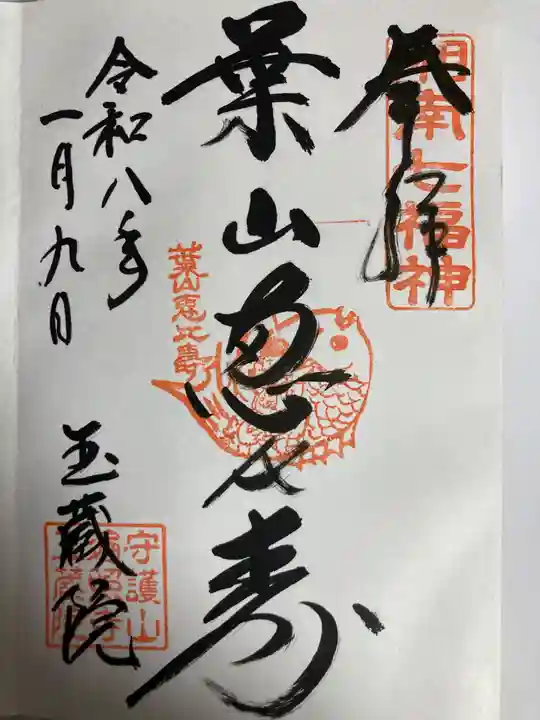 奉拝
湘南七福神
葉山恵比寿
葉山恵比寿
令和八年
一月九日
玉蔵院
守護山
玉蔵院